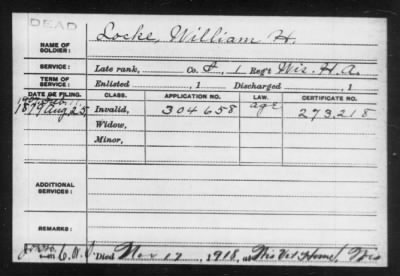 DEAD
NAME OF SOLDIER: Locke, William H.
SERVICE: Late rank, Co. F, 1 Reg't Wis. H. A.
TERM OF SERVICE: Enlisted , 1 Discharged , 1
DATE OF FILING. CLASS. APPLICATION NO. LAW. CERTIFICATE NO.
1879 Aug 25 Invalid, 304658 age 273.218
Widow,
Minor,
ADDITIONAL SERVICES:
REMARKS:
Died Mar 17, 1918, at Wis Vet Home, Wis